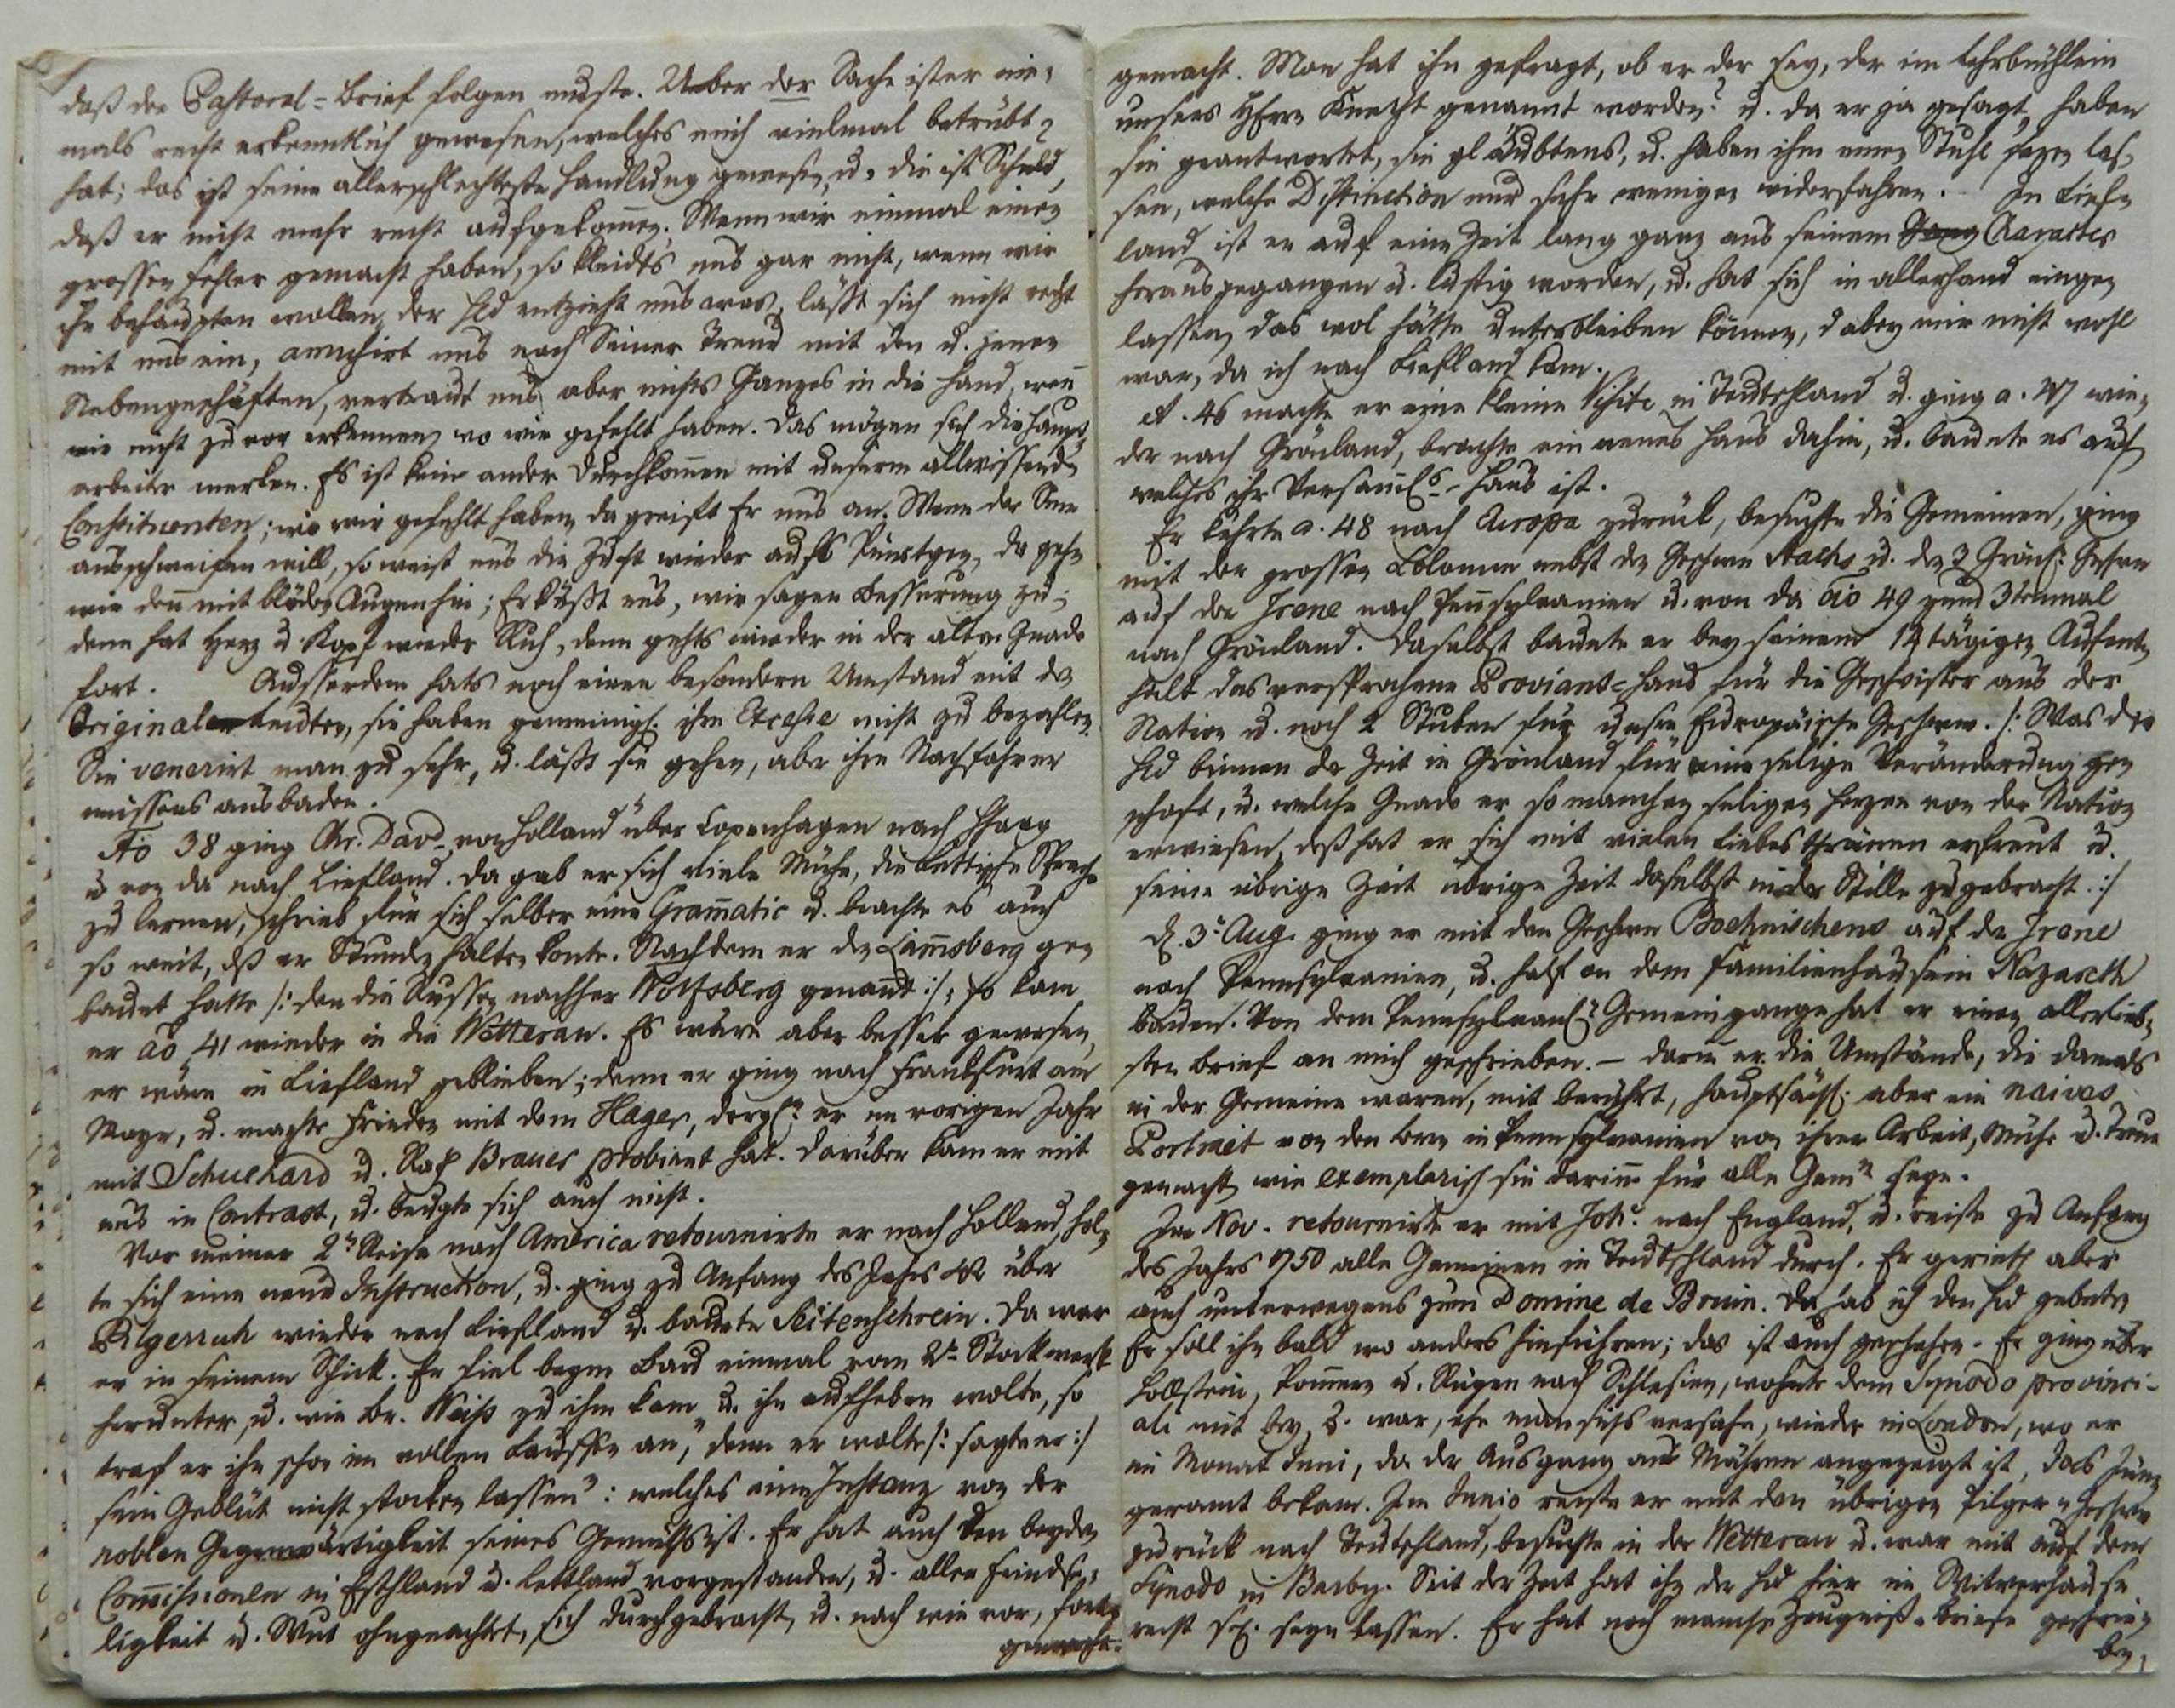 daß der Pastoral=brief folgen muste. Ueber der Sache ist er nie-
mals recht erkenntlich gewesen, welches mich vielmal betrübt
hat; das ist seine allerschlechteste Handlung gewesen, u. die ist Schuld,
daß er nicht mehr recht aufgekom̄en. Wenn wir einmal einen
grossen Fehler gemacht haben, so kleidts uns gar nicht, wenn wir
ihn behaupten wollen, der Hld entzieht uns was, läßt sich nicht recht
mit uns ein, amusirt uns nach Seiner Treue mit den u. jenen
Nebengeschäften, vertraut uns aber nichts Ganzes in die Hand, wen̄
wir nicht zuvor erkennen, wo wir gefehlt haben. Das mögen sich die Haupt-
arbeiter merken. Es ist kein ander Durchkom̄en mit unserm allwissenden
Constituenten; wo wir gefehlt haben, da greift Er uns an. Wenn der Sinn
ausschweifen will, so weist uns die Zucht wieder aufs Pünctgen, da gehn
wir den̄ mit blöden Augen hin; Er küßt uns, wir sagen Besserung zu;
denn hat Herz u. Kopf wieder Ruh, denn gehts wieder in der alten Gnade
fort. Ausserdem hats noch einen besondern Umstand mit den
Original=Leuten, sie haben gemeinigl. ihre Excesse nicht zu bezahlen.
Sie venerirt man zu sehr, u. läßt sie gehen, aber ihre Nachfahren
müssens ausbaden.
Ao 38 ging Chr. Davd von Holland über Copenhagen nach Haag
u. von da nach Liefland. Da gab er sich viele Mühe, die Lettische Sprache
zu lernen, schrieb für sich selber eine Gram̄atic u. brachte es auch
so weit, daß er Stunden halten konte. Nachdem er den Lam̄sberg ge-
bauet hatte /: den die Russen nachher Wolfsberg genan̄t :/, so kam
er ao 41 wieder in die Wetterau. Es wäre aber besser gewesen,
er wäre in Liefland geblieben; denn er ging nach Franckfurt am
Mayn, u. machte Frieden mit dem Hager, dergl. er im vorigen Jahr
mit Schuchard u. Rath Brauer probiret hat. Darüber kam er mit
uns in Contrast, u. beugte sich auch nicht.
Vor meiner 2n Reise nach America retournirte er nach Holland, hol-
te sich eine neue Instruction, u. ging zu Anfang des Jahrs 42 über
Pilgerruh wieder nach Liefland u. bauete Seitenschrein. Da war
er in seinem Schick. Er fiel beym Bau einmal vom 2n Stockwerk
herunter, u. wie Br. Weiß zu ihm kam, u. ihn aufheben wolte, so
traf er ihn schon im vollen Lauffen an, "denn er wolte /: sagte er :/
sein Geblüt nicht stocken lassen": welches eine Instanz von der
noblen Gegenwärtigkeit seines Gemüths ist. Er hat auch den beyden
Com̄issionen in Esthland u. Lettland vorgestanden, u. aller Feindse-
ligkeit u. Wut ohngeachtet, sich durchgebracht, u. nach wie vor, fort-
gemacht.
gemacht. Man hat ihn gefragt, ob er der sey, der im Lehrbüchlein
unsers HErrn Knecht genannt worden? u. da er ja gesagt, haben
sie geantwortet, sie gläubtens, u. haben ihm einen Stuhl sezen las-
sen, welche Distinction nur sehr wenigen widerfahren. In Lief-
land ist er auf eine Zeit lang ganz aus seinem Character
herausgegangen u. lustig worden, u. hat sich in allerhand einge-
lassen, das wol hätte unterbleiben können, dabey mir nicht wohl
war, da ich nach Liefland kam.
A. 46 machte er eine kleine Visite in Teutschland u. ging a. 47 wie-
der nach Grönland, brachte ein neues Haus dahin, u. bauete es auf,
welches ihr Versam̄ls-Haus ist.
Er kehrte a. 48 nach Europa zurück, besuchte die Gemeinen, ging
mit der grossen Colonne nebst den Geschwrn Stachs u. den 3 Grönl. Geschw
auf der Irene nach Pen̄sylvanien u. von da ao 49 zum 3tenmal
nach Grönland. Daselbst bauete er bey seinem 14tägigen Aufent-
halt das versprochene Proviant=Haus für die Geschwister aus der
Nation u. noch 2 Stuben für unsre Europäische Geschwr. /: Was der
Hld binnen der Zeit in Grönland für eine selige Veränderung ge-
schaft, u. welche Gnade er so manchen seligen Herzen von der Nation
erwiesen, deß hat er sich mit vielen Liebesthränen erfreut u.
seine übrige Zeit übrige Zeit daselbst in der Stille zugebracht. :/
D. 3n Aug. ging er mit den Geschwrn Boehnischens auf der Irene
nach Pennsylvanien, u. half an dem Familienhause in Nazareth
bauen. Von dem Pennsylvan. Gemeingange hat er einen allerlieb-
sten Brief an mich geschrieben. — Darin̄ er die Umstände, die damals
in der Gemeine waren, mit berührt, hauptsächl. aber ein naives
Portrait von den Brn in Pennsylvanien von ihrer Arbeit, Mühe u. Treue
gemacht, wie exemplarisch sie darin̄ für alle Gemn seyn.
Im Nov. retournirte er mit Joh. nach England, u. reiste zu Anfang
des Jahrs 1750 alle Gemeinen in Teutschland durch. Er gerieth aber
auch unterwegens zum Domine de Bruin. Da hab ich den Hld gebeten
Er soll ihn bald wo anders hinführen; das ist auch geschehen. Er ging über
Hollstein, Pom̄ern u. Rügen nach Schlesien, wohnte dem Synodo provinci-
ali mit bey, u. war, ehe man sichs versahe, wieder in London, wo er
im Monat Juni, da der Ausgang aus Mähren angezeigt ist, das Jün-
geramt bekam. Im Junio reiste er mit den übrigen Pilger-Geschwn
zurück nach Teutschland, besuchte in der Wetterau u. war mit auf dem
Synodo in Barby. Seit der Zeit hat ihn der Hld hier im Witwerhause
recht sel. seyn lassen. Er hat noch manche Zeugniß-Briefe geschrie-
ben,